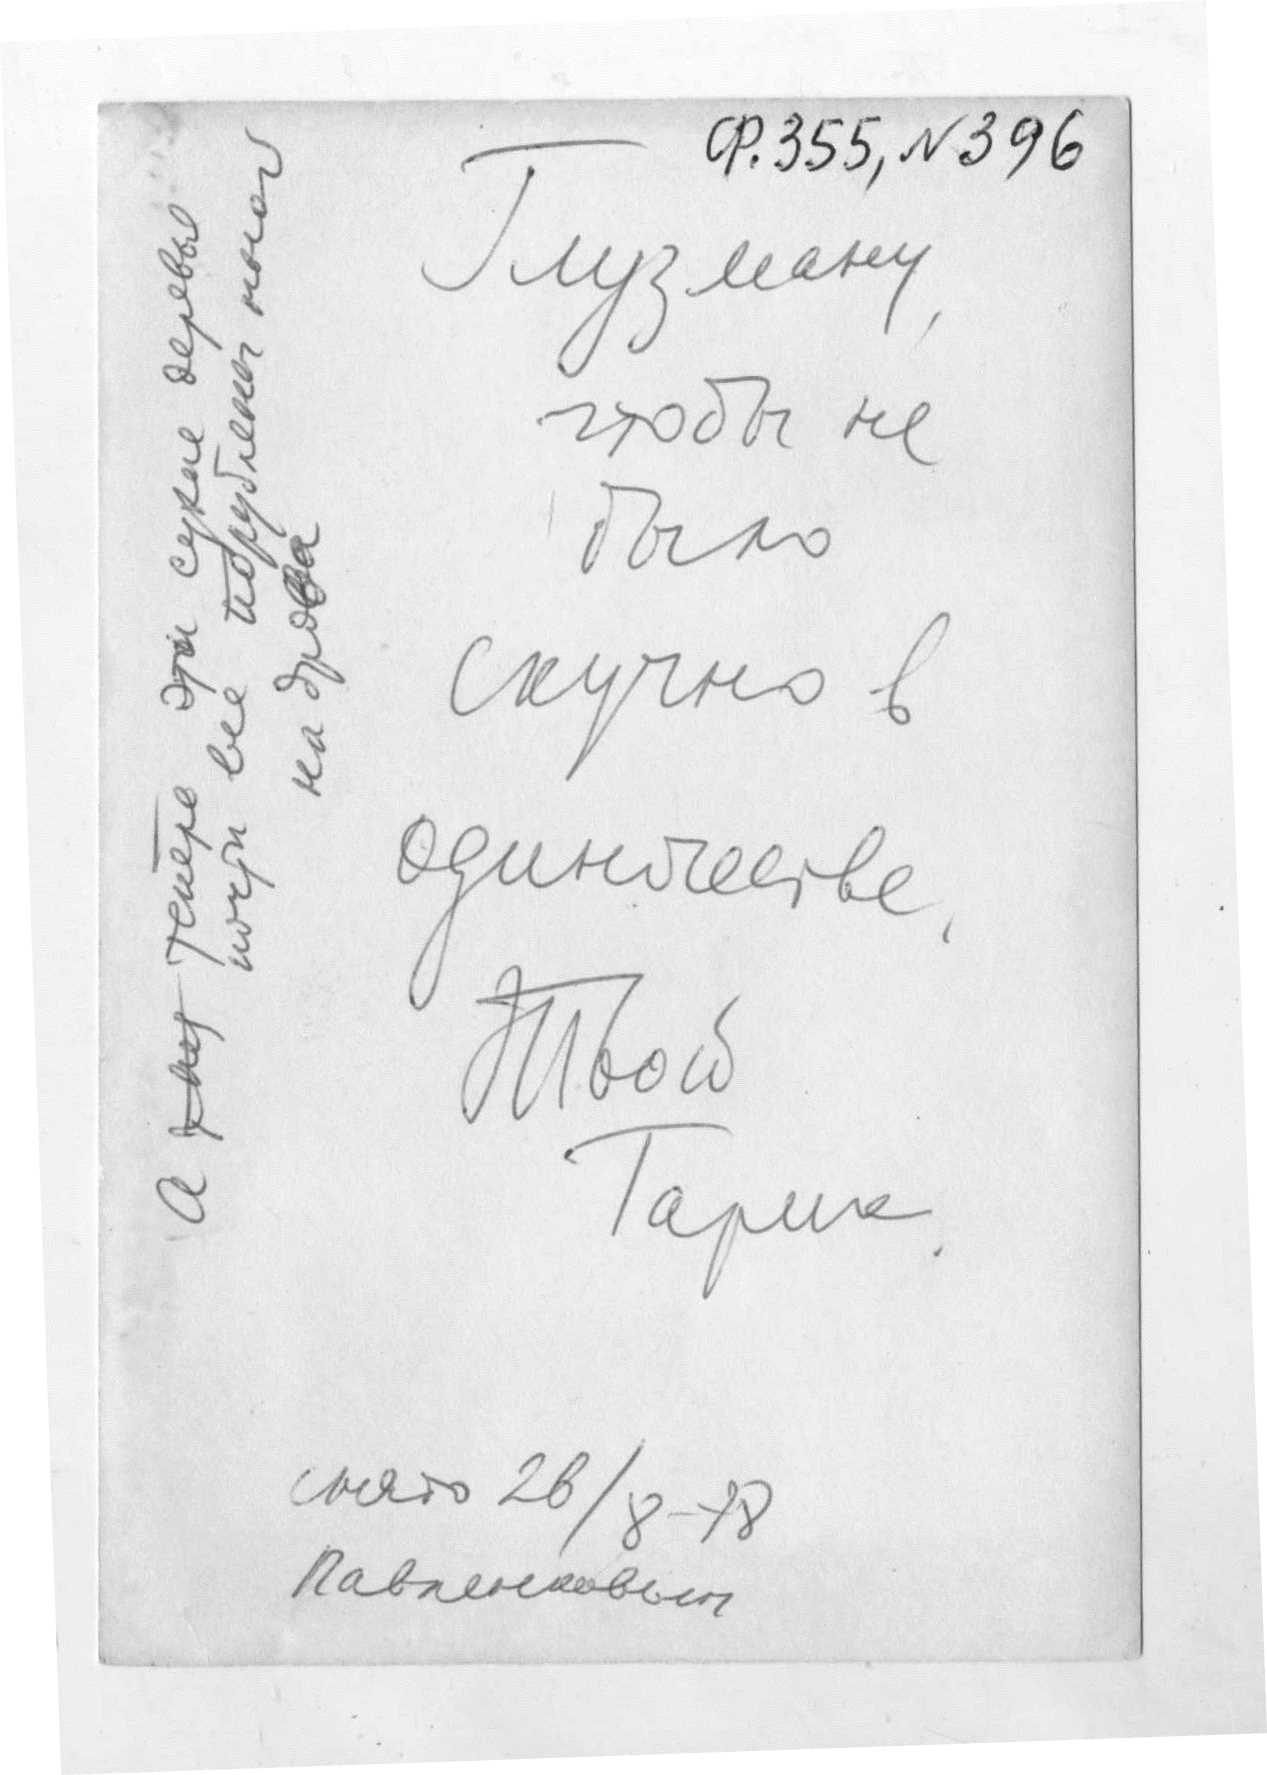 Ф.355, N396
Глузману,
чтобы не
было
скучно в
одиночестве,
Твой
Гарик.
снято 26/8-78
Павленковым
А теперь эти сухие деревья
почти все порублены мной
на дрова